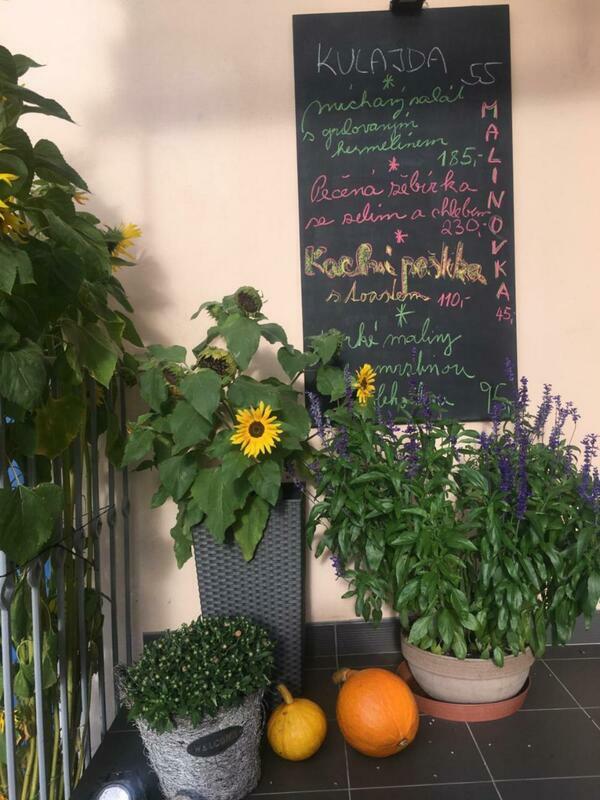 KULAJDA 55
míchaný salát
s grilovaným
hermelínem
185,-
Pečená žebírka
se zelím a chlebem
230,-
Kachní paštika
s toastem 110,-
maliny
95
MALINOVKA
45,-